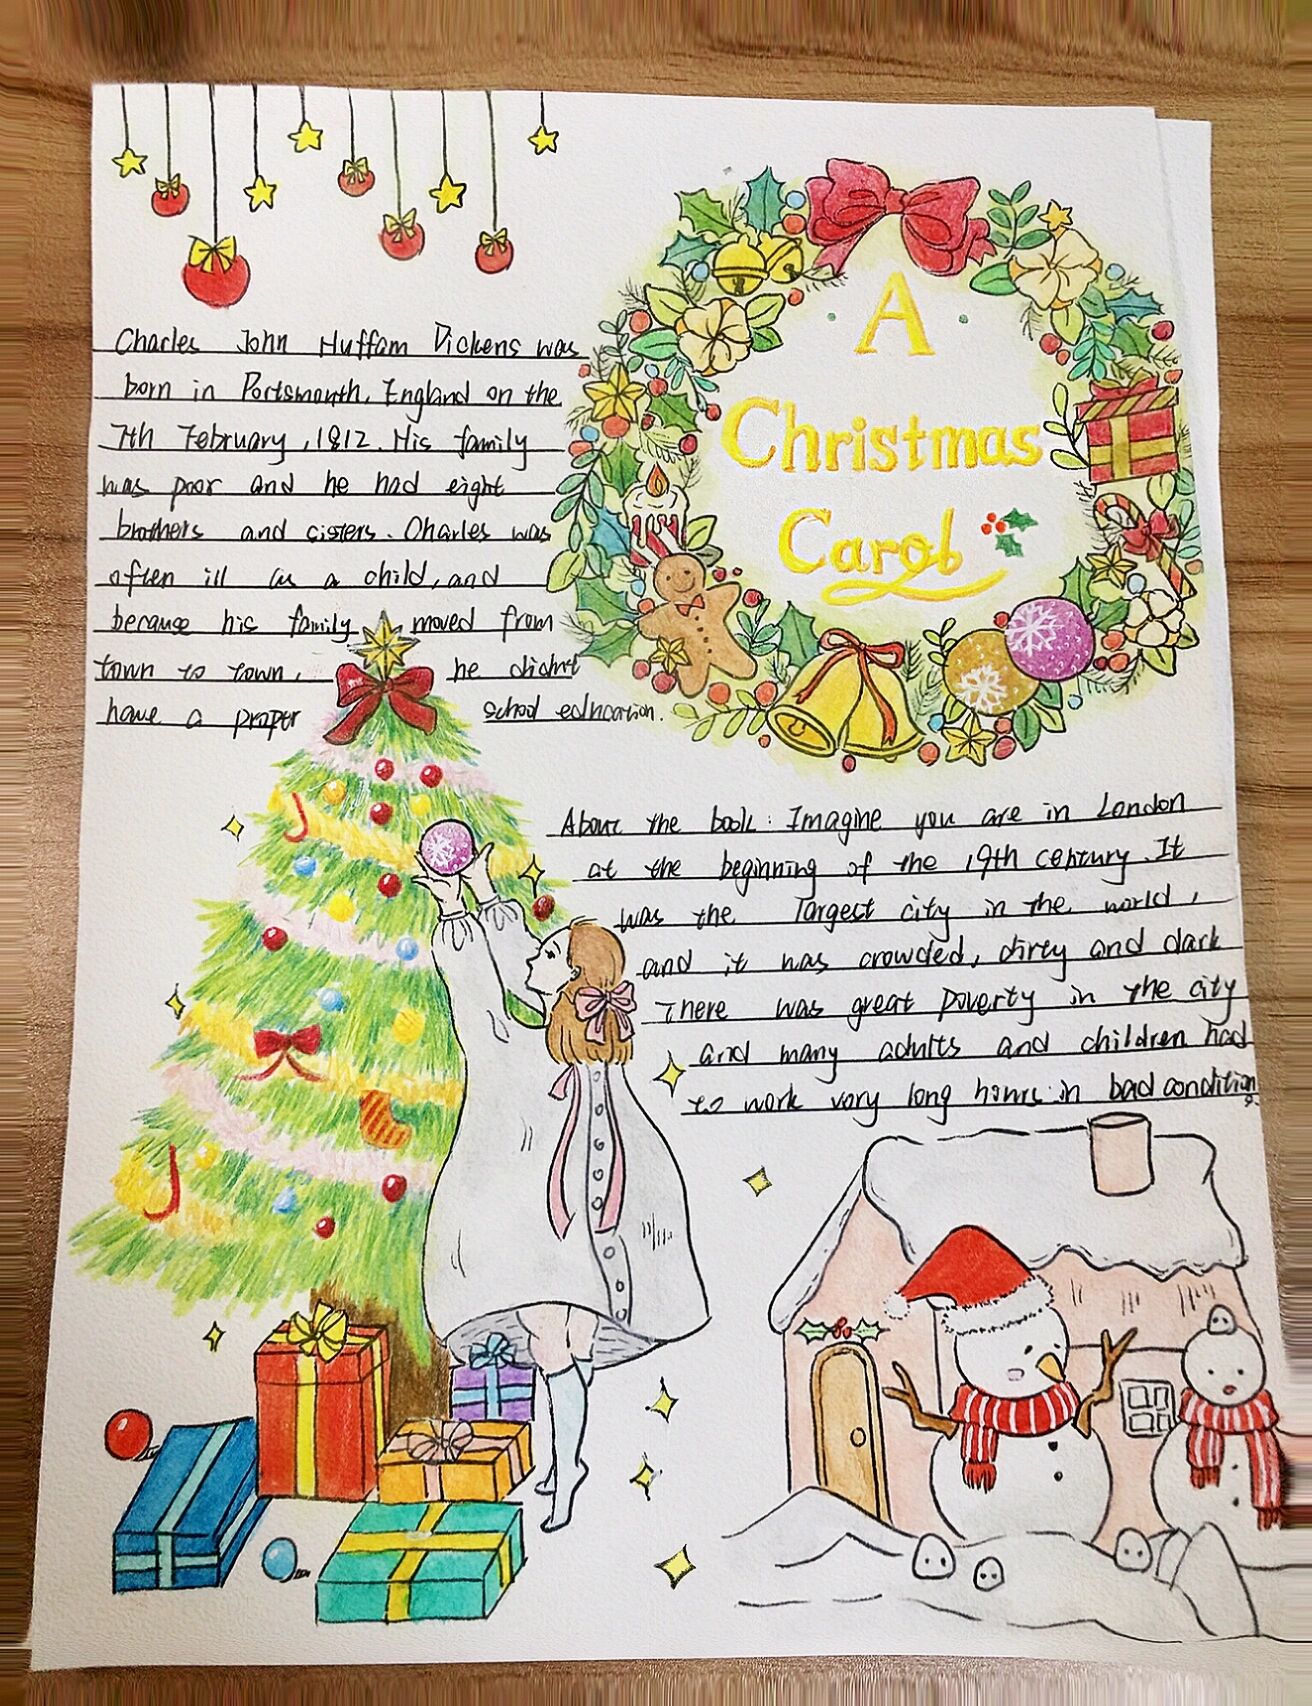 A
Christmas
Carol
Charles John Huffam Dickens was
born in Portsmouth, England on the
7th February, 1812. His family
was poor and he had eight
brothers and cisters. Charles was
often ill as a child, and
because his family moved from
town to town, he didn't
have a proper school education.
About the book: Imagine you are in London
at the beginning of the 19th century. It
was the largest city in the world,
and it was crowded, dirty and dark
There was great poverty in the city
and many adults and children had
to work very long hours in bad conditions.